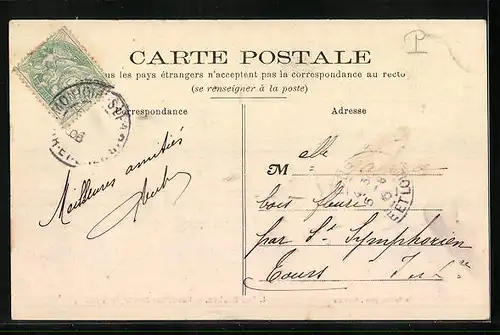 CARTE POSTALE
ous les pays étrangers n'acceptent pas la correspondance au recto
(se renseigner à la poste)
orrespondance
Adresse
Meilleures amitiés
M elle
bois fleuri
par St Symphorien
Tours I et L re